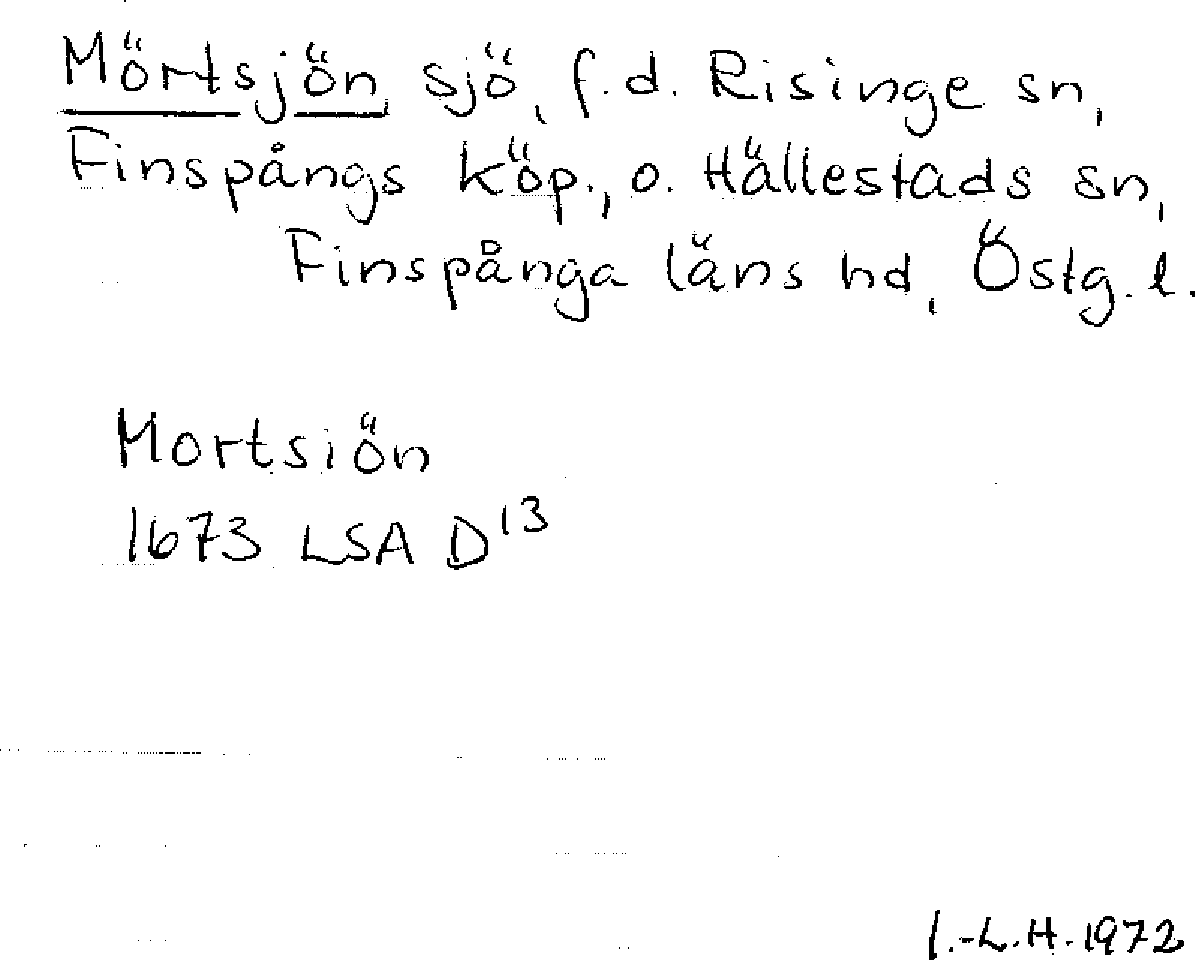 Mörtsjön sjö, f.d. Risinge sn,
Finspångs köp., o. Hällestads sn,
Finspånga läns hd, Östg. l.
Mortsiön
1673 LSA D¹³
I.-L.H. 1972